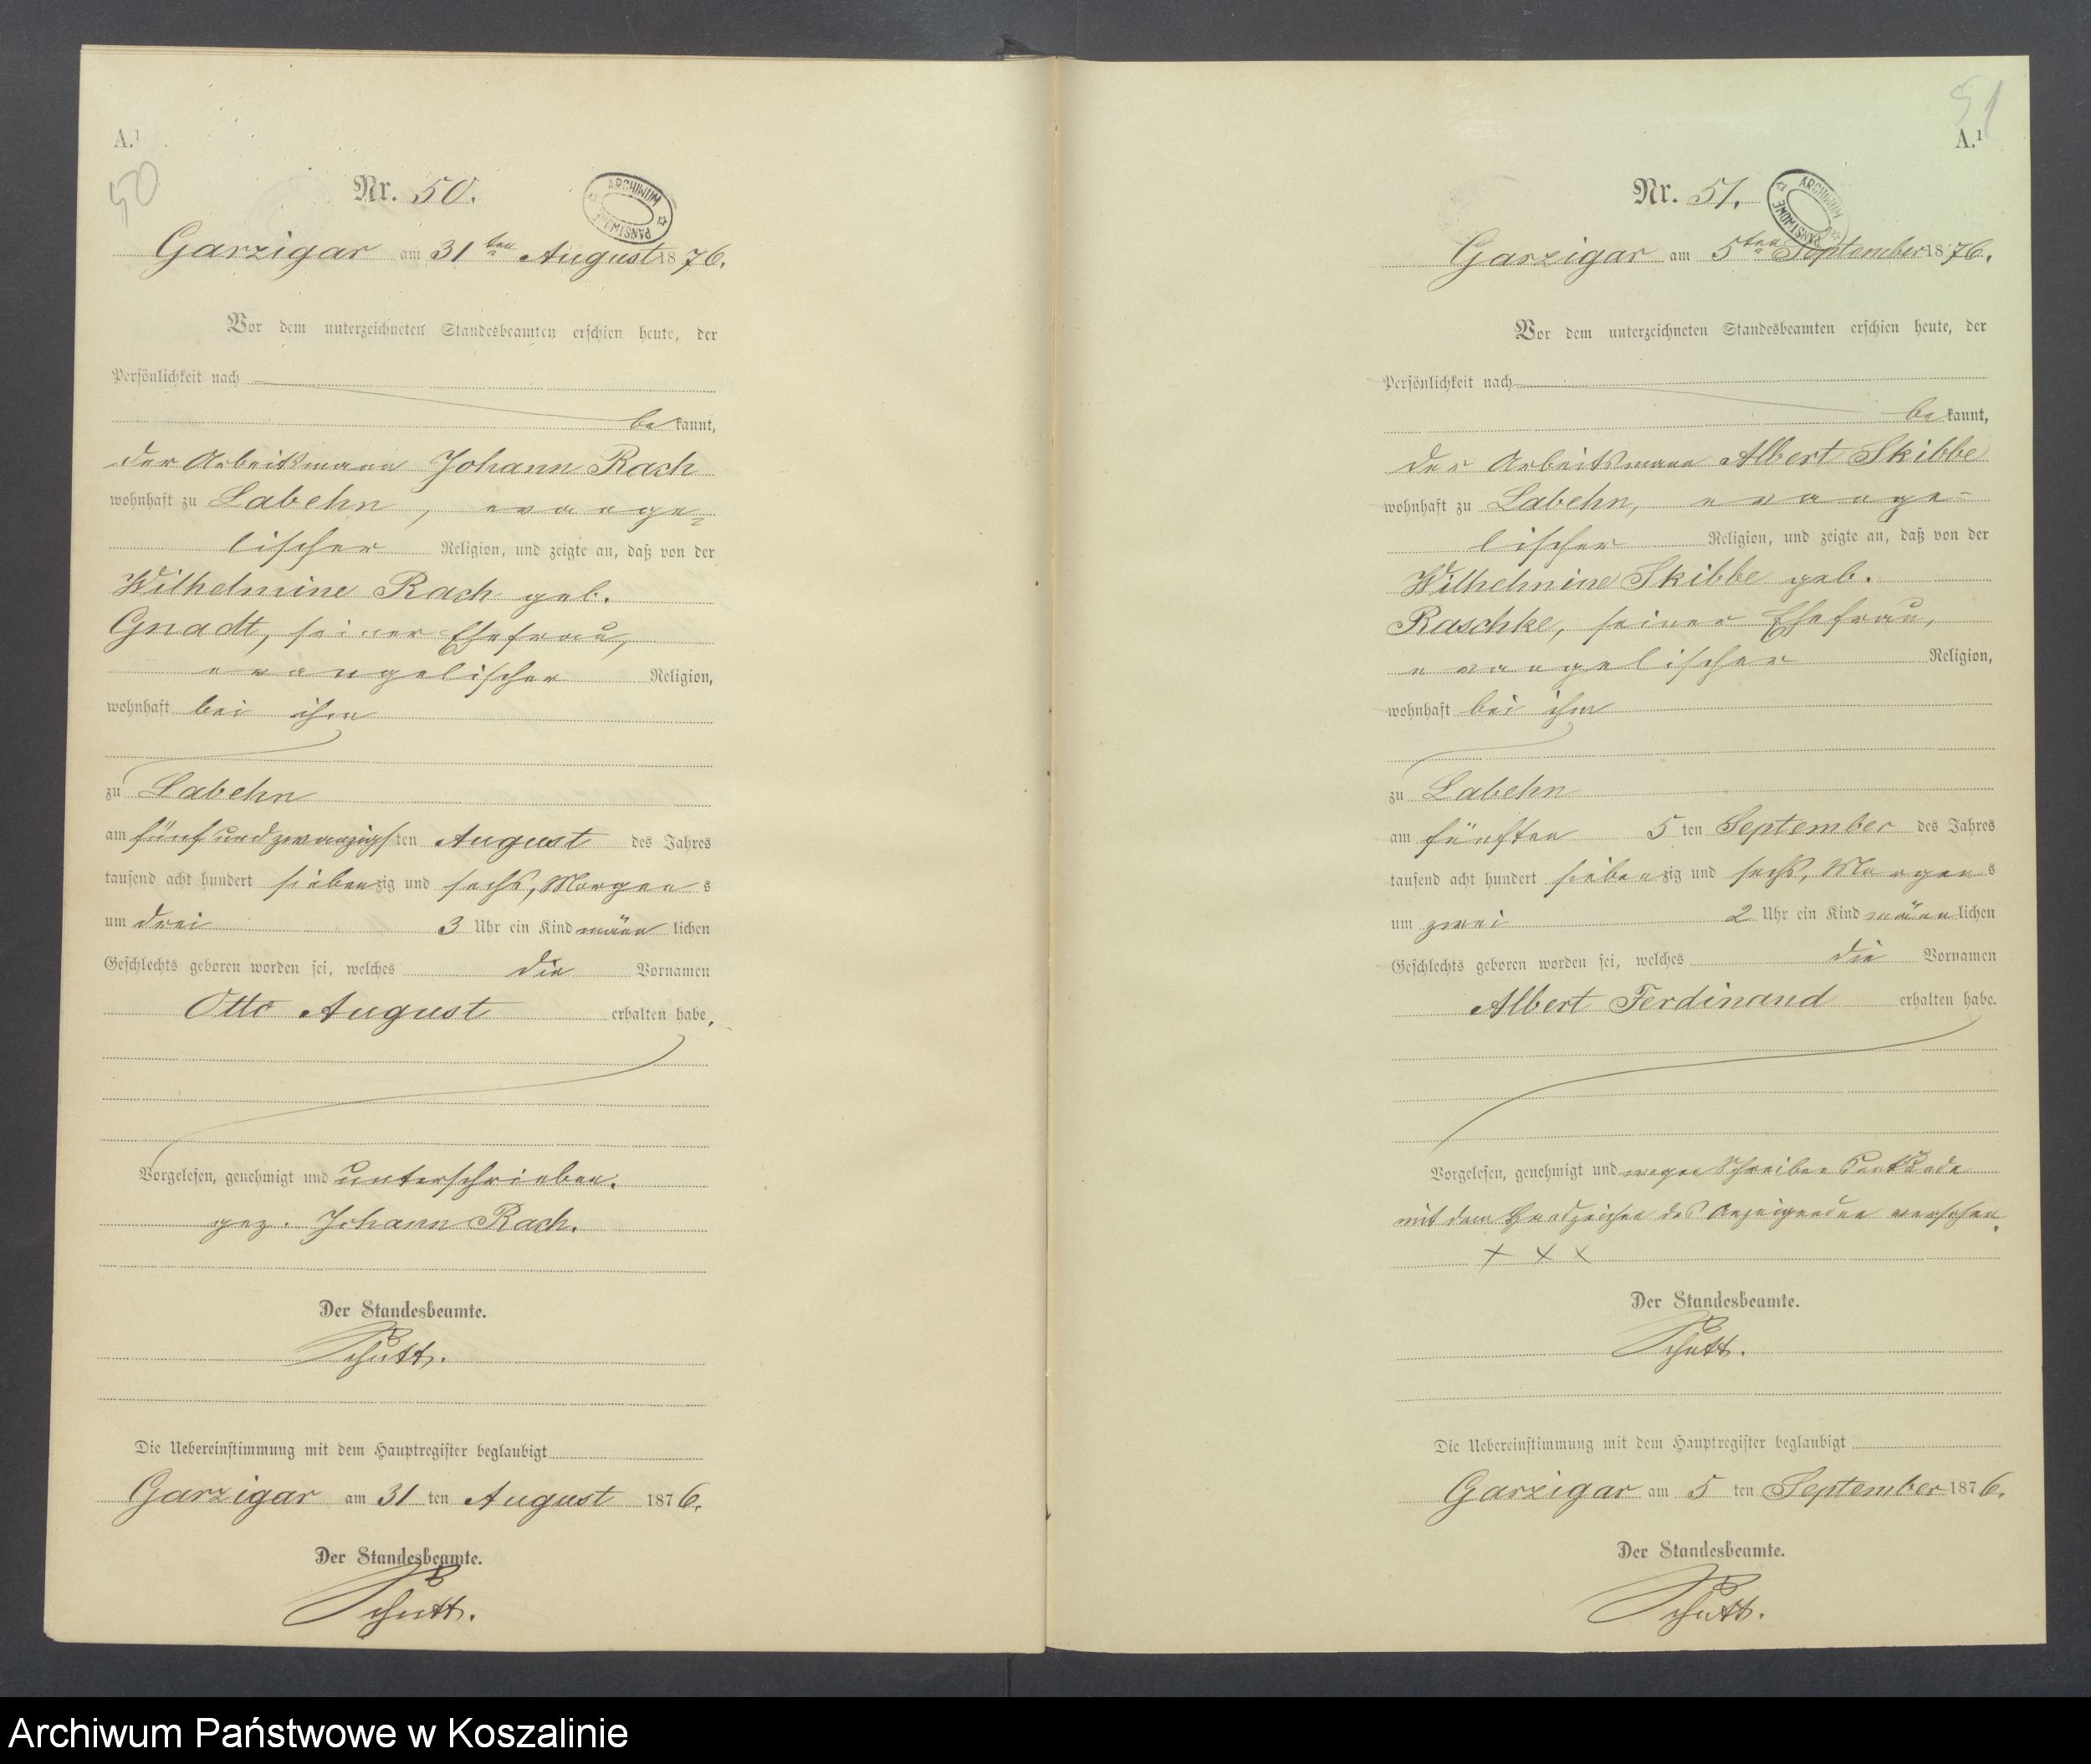 A.¹
50
Nr. 50.
ARCHIWUM PAŃSTWOWE
Garzigar am 31ten August 1876.
Vor dem unterzeichneten Standesbeamten erschien heute, der
Persönlichkeit nach
bekannt,
der Arbeitsmann Johann Rach
wohnhaft zu Labehn, evange-
lischer Religion, und zeigte an, daß von der
Wilhelmine Rach geb.
Gnadt, seiner Ehefrau,
evangelischer Religion,
wohnhaft bei ihm
zu Labehn
am fünf und zwanzigsten August des Jahres
tausend acht hundert siebenzig und sechs, Morgens
um drei 3 Uhr ein Kind männlichen
Geschlechts geboren worden sei, welches die Vornamen
Otto August erhalten habe.
Vorgelesen, genehmigt und unterschrieben.
gez. Johann Rach.
Der Standesbeamte.
Schütt.
Die Uebereinstimmung mit dem Hauptregister beglaubigt
Garzigar am 31 ten August 1876.
Der Standesbeamte.
Schütt.
51
A.¹
Nr. 51.
ARCHIWUM PAŃSTWOWE
Garzigar am 5ten September 1876.
Vor dem unterzeichneten Standesbeamten erschien heute, der
Persönlichkeit nach
bekannt,
der Arbeitsmann Albert Skibbe
wohnhaft zu Labehn, evange-
lischer Religion, und zeigte an, daß von der
Wilhelmine Skibbe geb.
Raschke, seiner Ehefrau,
evangelischer Religion,
wohnhaft bei ihm
zu Labehn
am fünften 5 ten September des Jahres
tausend acht hundert siebenzig und sechs, Morgens
um zwei 2 Uhr ein Kind männlichen
Geschlechts geboren worden sei, welches die Vornamen
Albert Ferdinand erhalten habe.
Vorgelesen, genehmigt und wegen Schreiben
mit dem Handzeichen des Anzeigenden versehen.
+ + x
Der Standesbeamte.
Schütt.
Die Uebereinstimmung mit dem Hauptregister beglaubigt
Garzigar am 5 ten September 1876.
Der Standesbeamte.
Schütt.
Archiwum Państwowe w Koszalinie